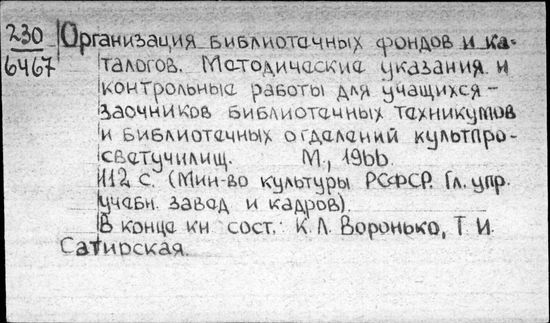 230
6467
Организация библиотечных фондов и ка-
талогов. Методические указания и
контрольные работы для учащихся-
заочников библиотечных техникумов
и библиотечных отделений культпро-
светучилищ. М., 1966.
112 с. (Мин-во культуры РСФСР. Гл. упр.
учебн. завед и кадров).
В конце кн. сост.: К. Л. Воронько, Т. И.
Сатирская.